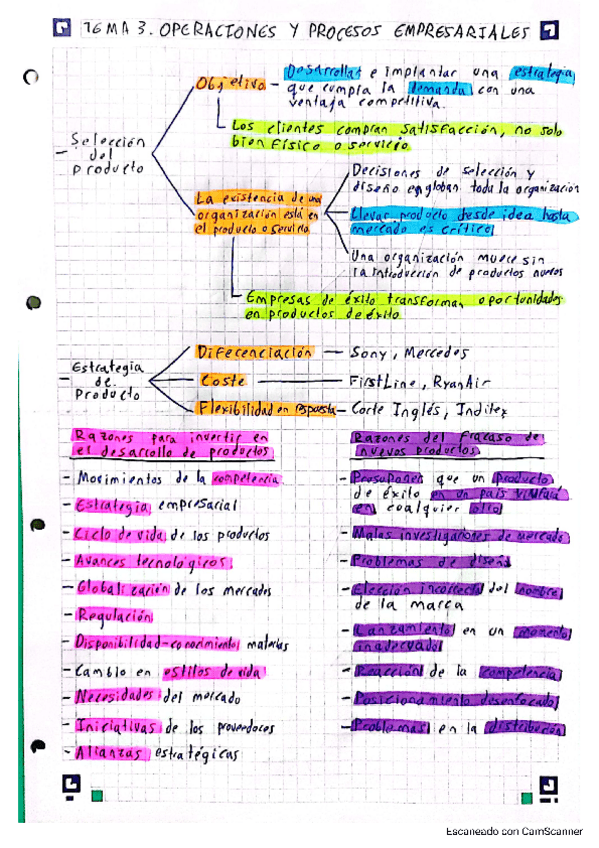 TEMA 3. OPERACIONES Y PROCESOS EMPRESARIALES
- Selección
del
producto
Objetivo - Desarrollar e implantar una estrategia
que cumpla la demanda con una
ventaja competitiva.
Los clientes compran satisfacción, no solo
bien físico o servicio
La existencia de una
organización está en
el producto o servicio
Decisiones de selección y
diseño engloban toda la organización
Llevar producto desde idea hasta
mercado es crítico
Una organización muere sin
la introducción de productos nuevos
Empresas de éxito transforman oportunidades
en productos de éxito
- Estrategia
de
Producto
Diferenciación - Sony, Mercedes
Coste - FirstLine, RyanAir
Flexibilidad en respuesta - Corte Inglés, Inditex
Razones para invertir en
el desarrollo de productos
- Movimientos de la competencia
- Estrategia empresarial
- Ciclo de vida de los productos
- Avances tecnológicos
- Globalización de los mercados
- Regulación
- Disponibilidad-conocimiento materias
- Cambio en estilos de vida
- Necesidades del mercado
- Iniciativas de los proveedores
- Alianzas estratégicas
Razones del fracaso de
nuevos productos
- Presuponer que un producto
de éxito en un país triunfará
en cualquier otro
- Malas investigaciones de mercado
- Problemas de diseño
- Elección incorrecta del nombre
de la marca
- Lanzamiento en un momento
inadecuado
- Reacción de la competencia
- Posicionamiento desenfocado
- Problemas en la distribución
Escaneado con CamScanner